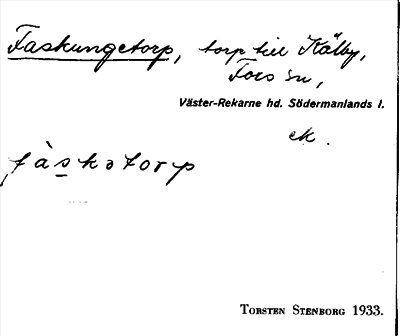 Faskungetorp, torp till Kälby,
Fors sn,
Väster-Rekarne hd. Södermanlands l.
ek.
fàskətorp
Torsten Stenborg 1933.